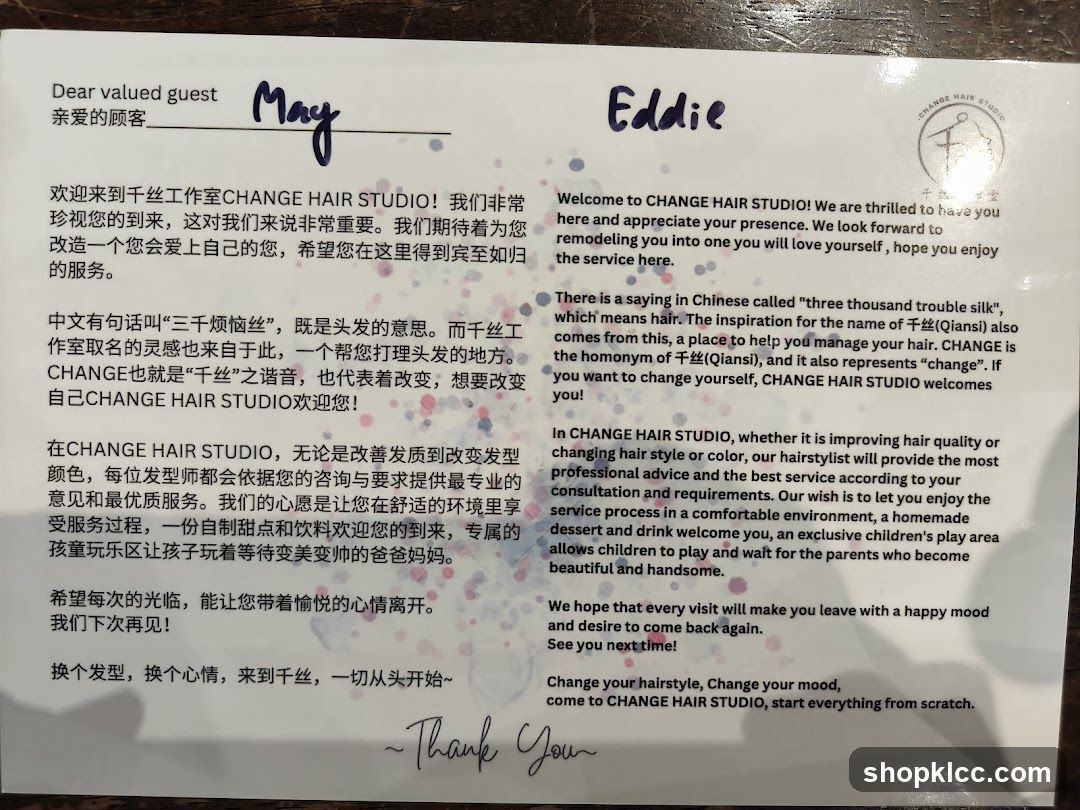 Dear valued guest
亲爱的顾客 May
Eddie
CHANGE HAIR STUDIO
欢迎来到千丝工作室CHANGE HAIR STUDIO！我们非常
珍视您的到来，这对我们来说非常重要。我们期待着为您
改造一个您会爱上自己的您，希望您在这里得到宾至如归
的服务。
中文有句话叫“三千烦恼丝”，既是头发的意思。而千丝工
作室取名的灵感也来自于此，一个帮您打理头发的地方。
CHANGE也就是“千丝”之谐音，也代表着改变，想要改变
自己CHANGE HAIR STUDIO欢迎您！
在CHANGE HAIR STUDIO，无论是改善发质到改变发型
颜色，每位发型师都会依据您的咨询与要求提供最专业的
意见和最优质服务。我们的心愿是让您在舒适的环境里享
受服务过程，一份自制甜点和饮料欢迎您的到来，专属的
孩童玩乐区让孩子玩着等待变美变帅的爸爸妈妈。
希望每次的光临，能让您带着愉悦的心情离开。
我们下次再见！
换个发型，换个心情，来到千丝，一切从头开始~
Welcome to CHANGE HAIR STUDIO! We are thrilled to have you
here and appreciate your presence. We look forward to
remodeling you into one you will love yourself , hope you enjoy
the service here.
There is a saying in Chinese called "three thousand trouble silk",
which means hair. The inspiration for the name of 千丝(Qiansi) also
comes from this, a place to help you manage your hair. CHANGE is
the homonym of 千丝(Qiansi), and it also represents “change”. If
you want to change yourself, CHANGE HAIR STUDIO welcomes
you!
In CHANGE HAIR STUDIO, whether it is improving hair quality or
changing hair style or color, our hairstylist will provide the most
professional advice and the best service according to your
consultation and requirements. Our wish is to let you enjoy the
service process in a comfortable environment, a homemade
dessert and drink welcome you, an exclusive children's play area
allows children to play and wait for the parents who become
beautiful and handsome.
We hope that every visit will make you leave with a happy mood
and desire to come back again.
See you next time!
Change your hairstyle, Change your mood,
come to CHANGE HAIR STUDIO, start everything from scratch.
~Thank You~
shopklcc.com